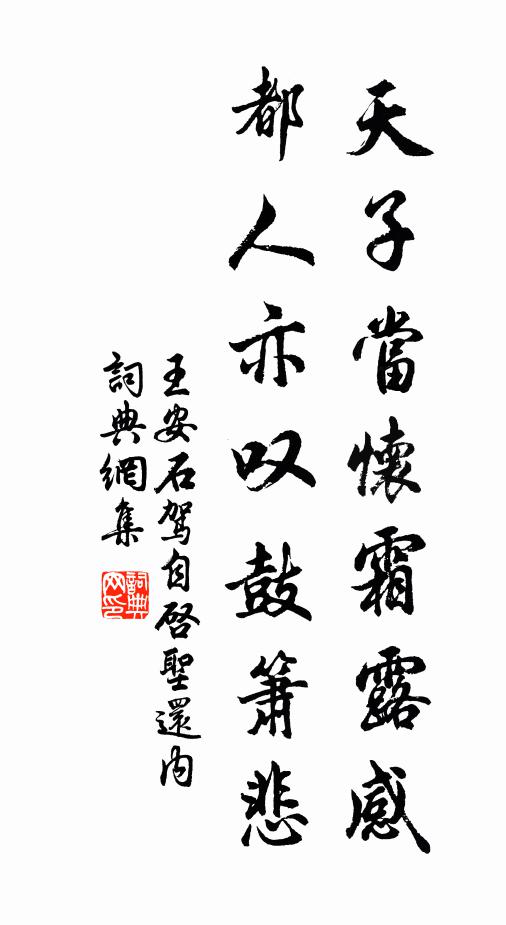 天子當懷霜露感
都人亦叹鼓簫悲
王安石駕自啓聖還内
詞典網集
詞典網印